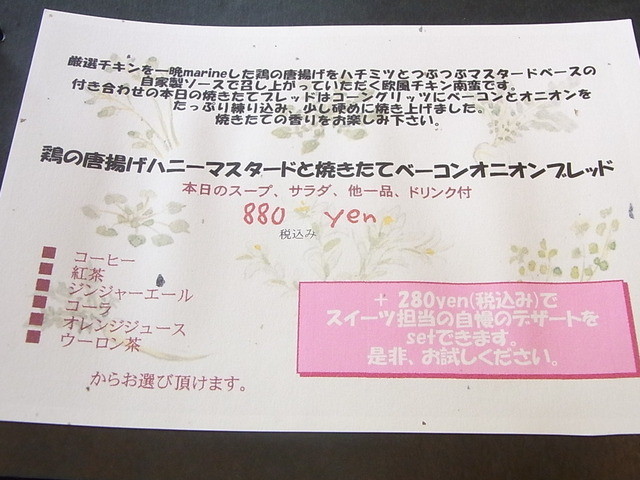 厳選チキンを一晩marineした鶏の唐揚げをハチミツとつぶつぶマスタードベースの
自家製ソースで召し上がっていただく欧風チキン南蛮です。
付き合わせの本日の焼きたてブレッドはコーングリッツにベーコンとオニオンを
たっぷり練り込み、少し硬めに焼き上げました。
焼きたての香りをお楽しみ下さい。
鶏の唐揚げハニーマスタードと焼きたてベーコンオニオンブレッド
本日のスープ、サラダ、他一品、ドリンク付
880 yen
税込み
コーヒー
紅茶
ジンジャーエール
コーラ
オレンジジュース
ウーロン茶
からお選び頂けます。
+ 280yen(税込み)で
スイーツ担当の自慢のデザートを
setできます。
是非、お試しください。